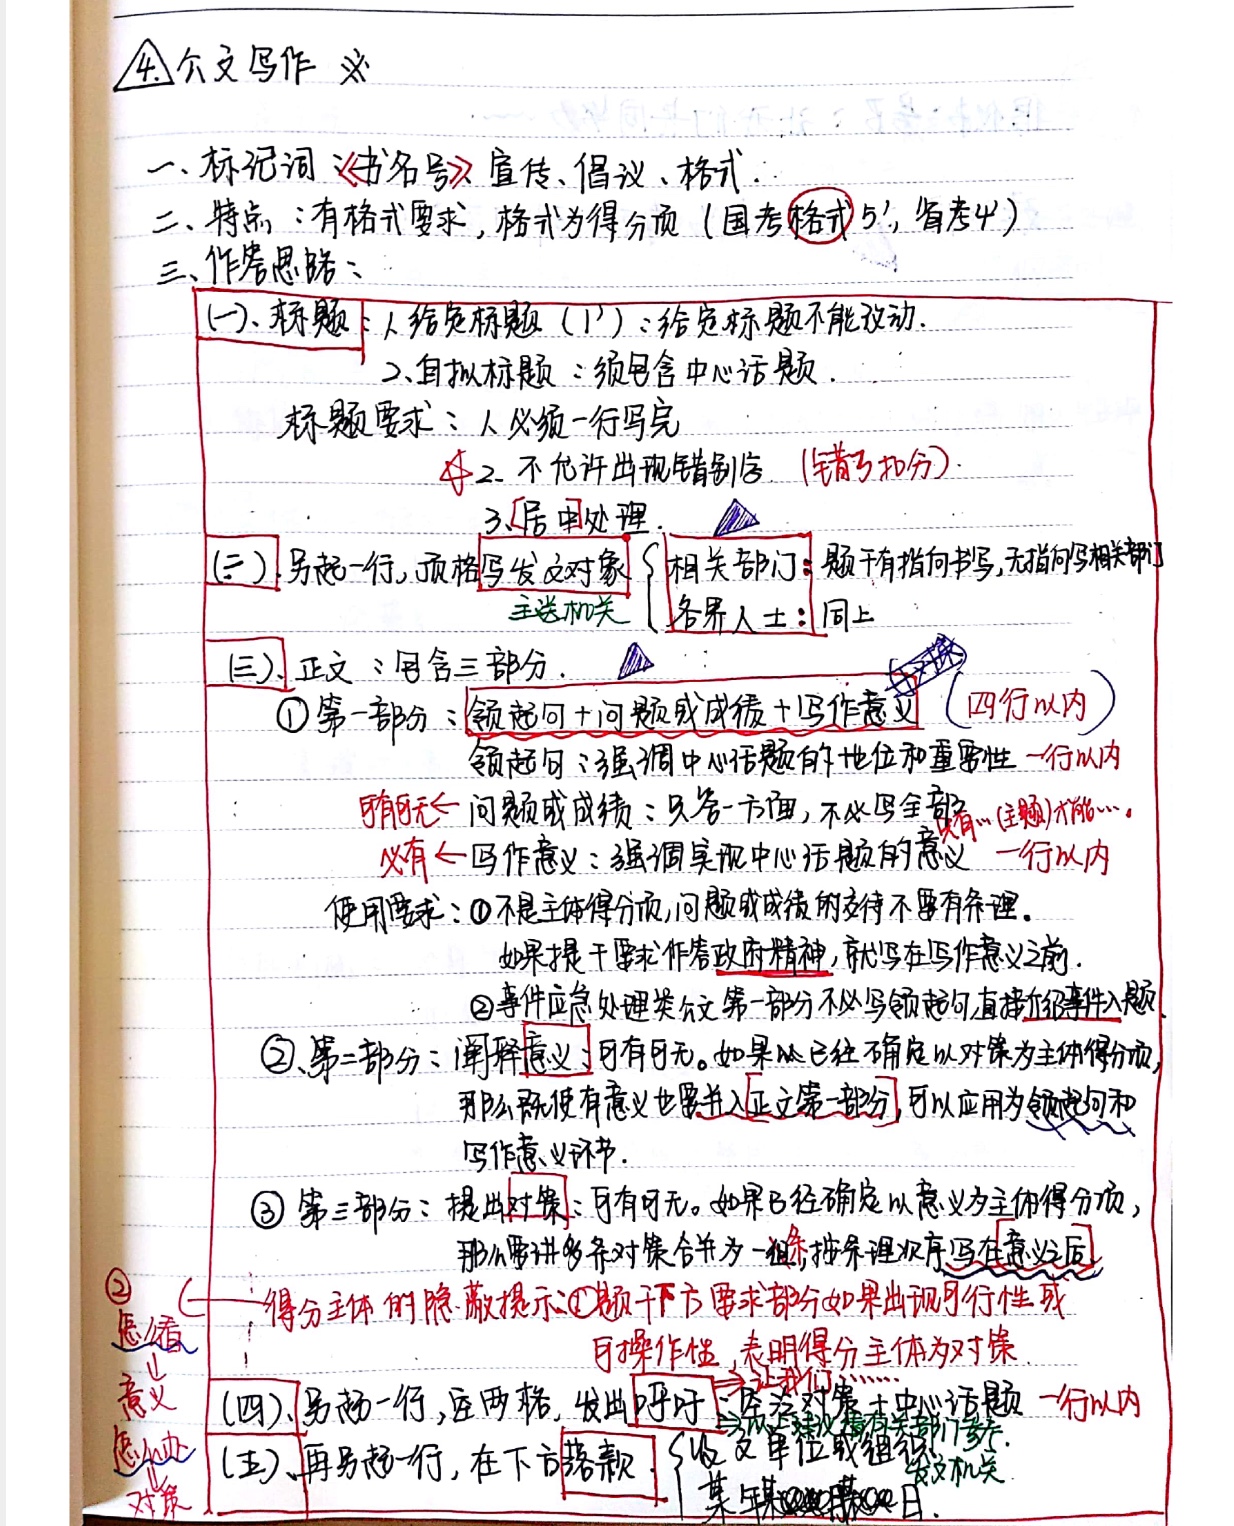 4. 公文写作 ※
一、标记词:《书名号》宣传、倡议、格式.
二、特点:有格式要求,格式为得分项(国考格式5',省考4')
三、作答思路:
(一)、标题:1、给定标题(1'):给定标题不能改动.
2、自拟标题:须包含中心话题.
标题要求:1、必须一行写完
☆2. 不允许出现错别字(错1扣分).
3、居中处理.
(二)、另起一行,顶格写发文对象 { 相关部门:题干有指向书写,无指向写相关部门
主送机关 各界人士:同上
(三)、正文:包含三部分.
①第一部分:领起句+问题或成绩+写作意义(四行以内)
领起句:强调中心话题的地位和重要性 一行以内
可有可无← 问题或成绩:只答一方面,不必写全部
只有…(主题)才能….
必有← 写作意义:强调实现中心话题的意义 一行以内
使用要求:①不是主体得分项,问题或成绩的交待不要有条理。
如果提干要求作答政府精神,就写在写作意义之前.
②事件应急处理类公文第一部分不必写领起句,直接介绍事件入题.
②、第二部分:阐释意义:可有可无。如果从已经确定以对策为主体得分项,
那么既使有意义也要并入正文第一部分,可以应用为领起句和
写作意义环节.
③ 第三部分:提出对策:可有可无。如果已经确定以意义为主体得分项,
那么要讲多条对策合并为一条,按条理次序写在意义之后
得分主体的隐蔽提示:①题干下方要求部分如果出现可行性或
可操作性,表明得分主体为对策
②
怎么看
↓
意义
怎么办
↓
对策
→让我们……
(四)、另起一行,空两格,发出呼吁:方法对策+中心话题 一行以内
→以上建议请有关部门参考.
(五)、再另起一行,在下方落款. { 发文单位或组织.
发文机关
某年某月某日.